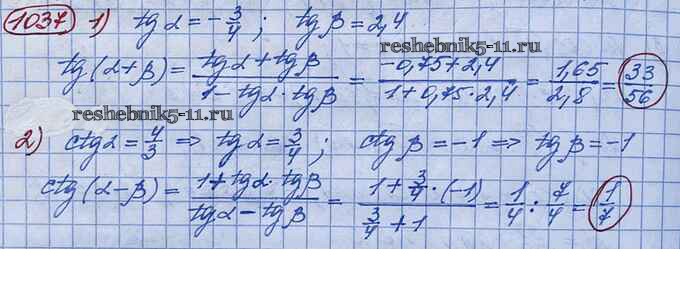 1037 1) tg α = -3/4 ; tg β = 2,4
reshebnik5-11.ru
tg(α+β) = (tgα + tgβ)/(1 - tgα · tgβ) = (-0,75 + 2,4)/(1 + 0,75 · 2,4) = 1,65/2,8 = 33/56
reshebnik5-11.ru
2) ctgα = 4/3 ⇒ tgα = 3/4 ; ctg β = -1 ⇒ tgβ = -1
ctg(α-β) = (1 + tgα · tgβ)/(tgα - tgβ) = (1 + 3/4 · (-1))/(3/4 + 1) = 1/4 : 7/4 = 1/7